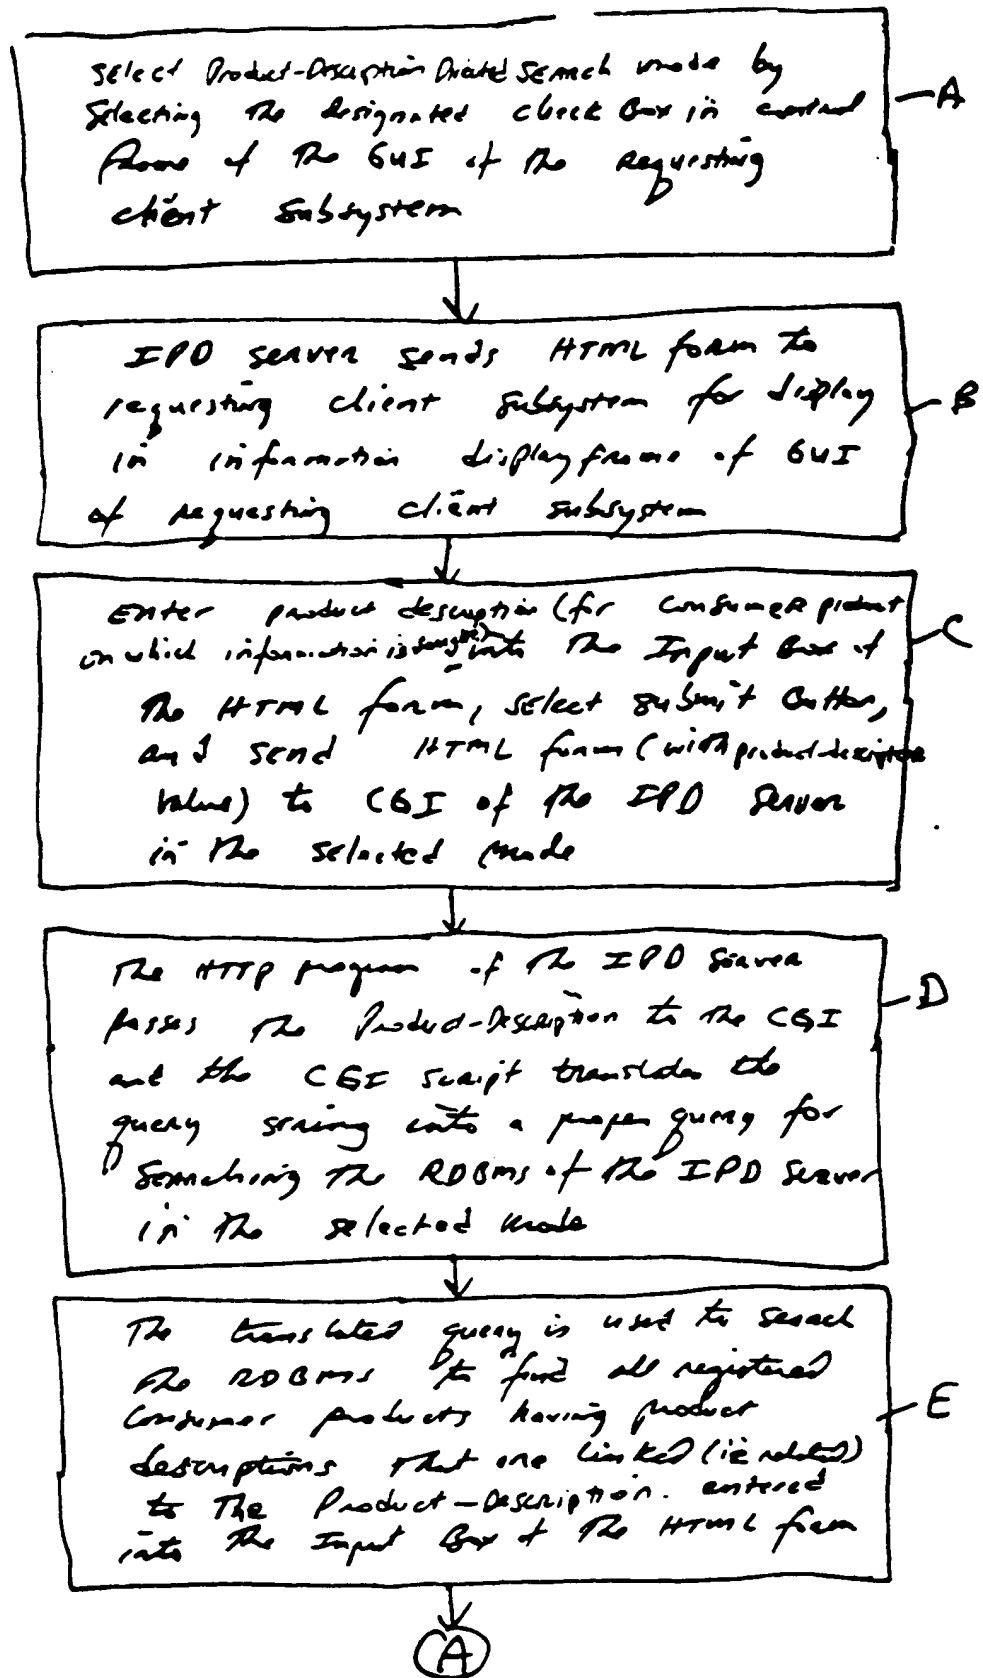 Select Product-Description Directed Search mode by
Selecting the designated check Box in control
frame of the GUI of the requesting
client subsystem
A
IPD server sends HTML form to
requesting client subsystem for display
in information display frame of GUI
of requesting client subsystem
B
Enter product description (for consumer product
on which information is sought) into the Input Box of
the HTML form, select submit Button,
and send HTML form (with product-description
value) to CGI of the IPD Server
in the selected mode
C
The HTTP program of the IPD Server
passes the Product-Description to the CGI
and the CGI script translates the
query string into a proper query for
Searching the RDBMS of the IPD Server
in the selected mode
D
The translated query is used to search
the RDBMS to find all registered
Consumer products having product
descriptions that are linked (ie related)
to the Product-Description. entered
into the Input Box of the HTML form
E
A